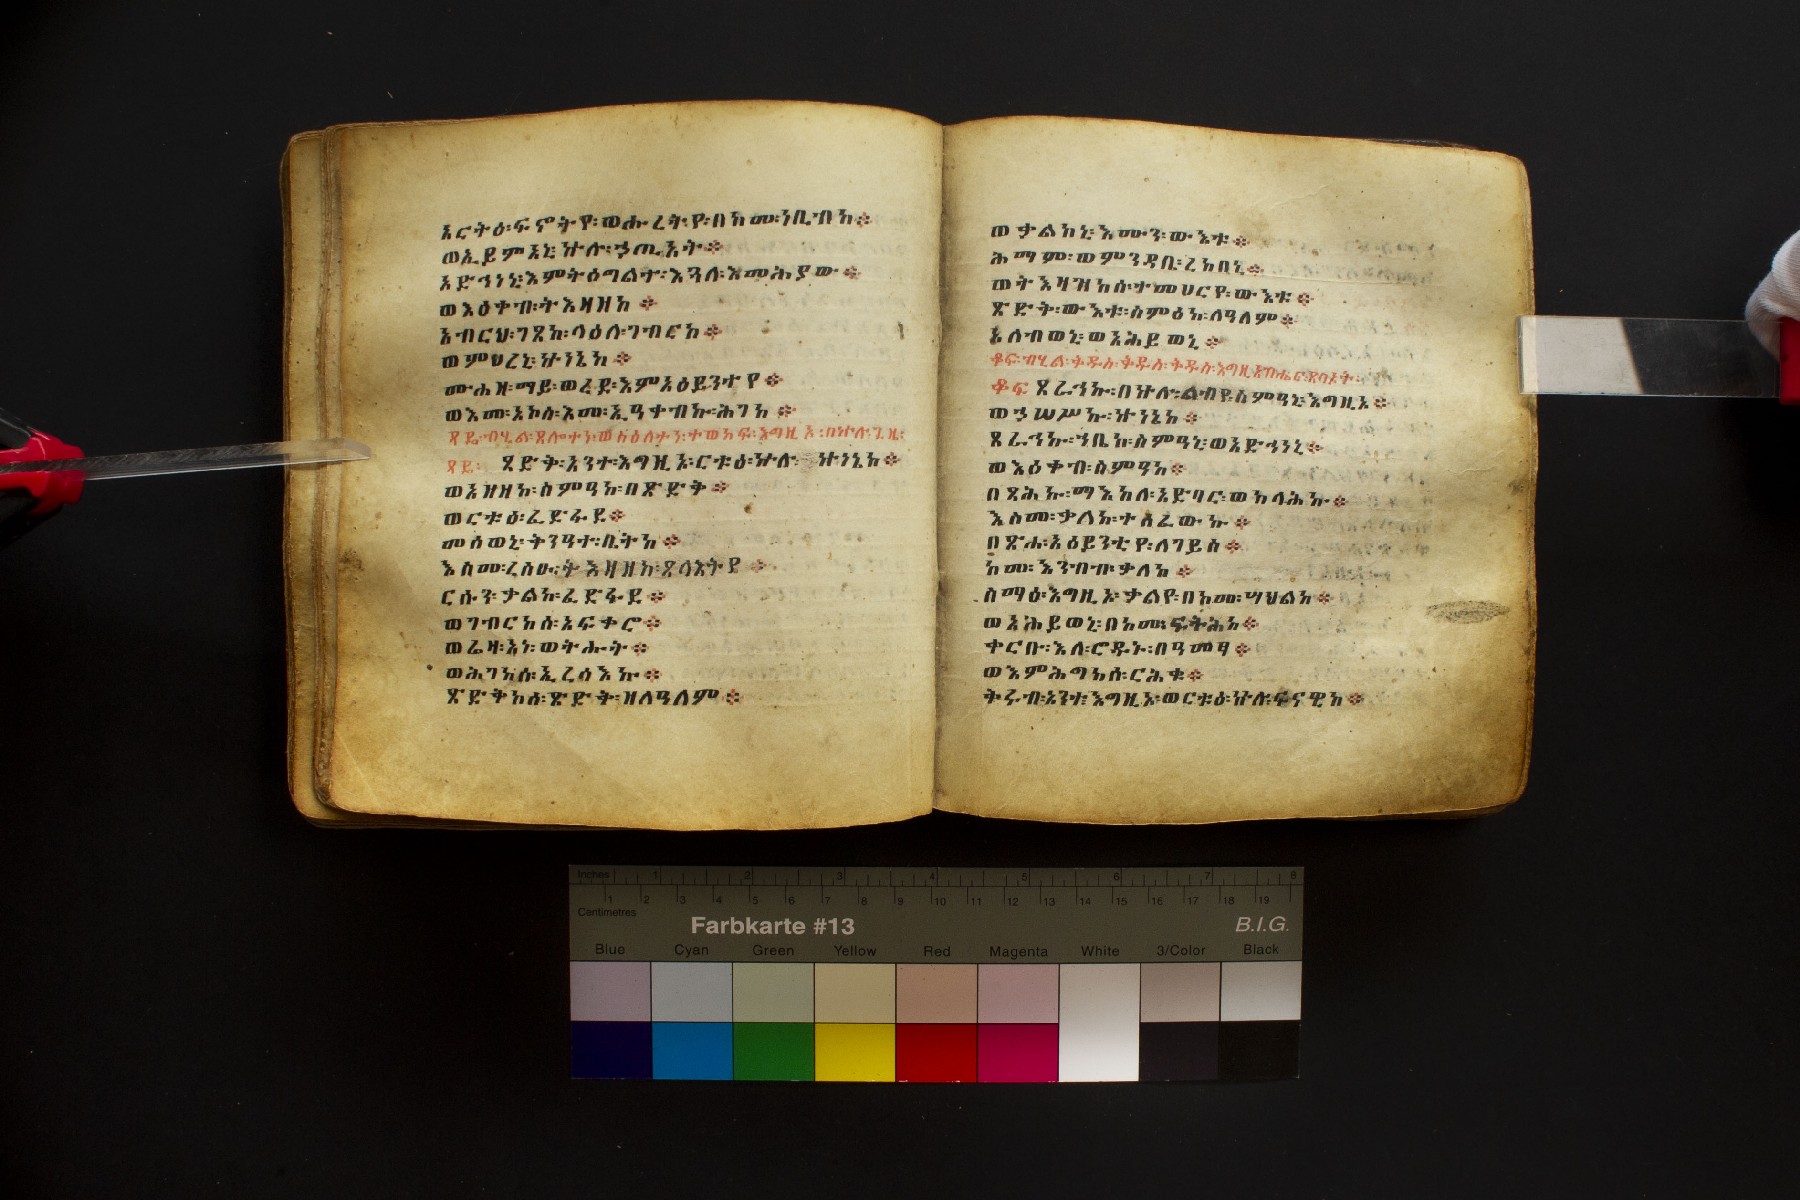 አርትዕ፡ፍኖትየ፡ወሑረትየ፡በከመ፡ነቢብከ፨
ወኢይምአኒ፡ኵሉ፡ኃጢአት፨
አድኅነኒ፡እምትዕግልተ፡እጓለ፡እመሕያው፨
ወእዕቀብ፡ትእዛዘከ፨
አብርህ፡ገጸከ፡ላዕለ፡ገብርከ፨
ወምህረኒ፡ኵነኔከ፨
ሙሐዘ፡ማይ፡ወረደ፡እምአዕይንትየ፨
ወእመ፡አኮሰ፡እመ፡ኢዓቀብኩ፡ሕገከ፨
ጸዴ፡ብሂል፡ጸሎተነ፡ወስዕለታነ፡ተወከፍ፡እግዚኦ፡በኵሉ፡ጊዜ፡
ጻዴ፡ ጻድቅ፡አንተ፡እግዚኦ፡ርቱዕ፡ኵሉ፡ኵነኔከ፨
ወአዘዝከ፡ስምዓከ፡በጽድቅ፨
ወርቱዕ፡ፈድፋደ፨
መሰወኒ፡ቅንዓተ፡ቤትከ፨
እስመ፡ረስዑ፡ትእዛዘከ፡ጸላእትየ፨
ርሱን፡ቃልከ፡ፈድፋደ፨
ወገብርከሰ፡አፍቀሮ፨
ወሬዛ፡አነ፡ወትሑት፨
ወሕገከሰ፡ኢረሳእኩ፨
ጽድቅከሰ፡ጽድቅ፡ዘለዓለም፨
ወቃልከኒ፡እሙን፡ውእቱ፨
ሕማም፡ወምንዳቤ፡ረከበኒ፨
ወትእዛዝከሰ፡ተመሀርየ፡ውእቱ፨
ጽድቅ፡ውእቱ፡ስምዕከ፡ለዓለም፨
አለብወኒ፡ወአሕይወኒ፨
ቆፍ፡ብሂል፡ቅዱስ፡ቅዱስ፡ቅዱስ፡እግዚአብሔር፡ጸባኦት፡
ቆፍ ጸራኅኩ፡በኵሉ፡ልብየ፡ስምዓኒ፡እግዚኦ፨
ወኃሠሥኩ፡ኵነኔከ፨
ጸራኅኩ፡ኀቤከ፡ስምዓኒ፡ወአድኅነኒ፨
ወእዕቀብ፡ስምዓከ፨
በጻሕኩ፡ማእከለ፡አድባር፡ወከላሕኩ፨
እስመ፡ቃለከ፡ተሰፈውኩ፨
በጽሐ፡አዕይንቲየ፡ለገይስ፨
ከመ፡እንብብ፡ቃለከ፨
ስማዕ፡እግዚኦ፡ቃልየ፡በከመ፡ሣህልከ፨
ወአሕይወኒ፡በከመ፡ፍትሕከ፨
ቀርቡ፡እለ፡ሮዱኒ፡በዓመፃ፨
ወእምሕግከሰ፡ርሕቁ፨
ቅሩብ፡አንተ፡እግዚኦ፡ወርቱዕ፡ኵሉ፡ፍናዊከ፨
Inches 1 2 3 4 5 6 7 8
Centimetres 1 2 3 4 5 6 7 8 9 10 11 12 13 14 15 16 17 18 19
Farbkarte #13 B.I.G.
Blue Cyan Green Yellow Red Magenta White 3/Color Black